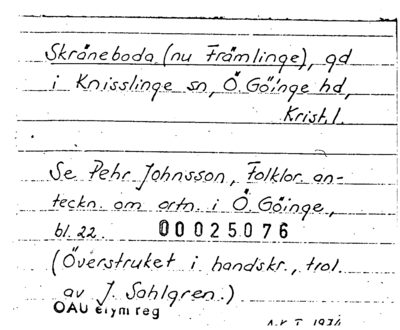 Skråneboda (nu Främlinge), gd
i Knisslinge sn, Ö. Göinge hd,
Krist.l.
Se Pehr Johnsson, Folklor. an-
teckn. om ortn. i Ö. Göinge,
bl. 22. 00025076
(Överstruket i handskr., trol.
av J. Sahlgren.)
OAU etym reg